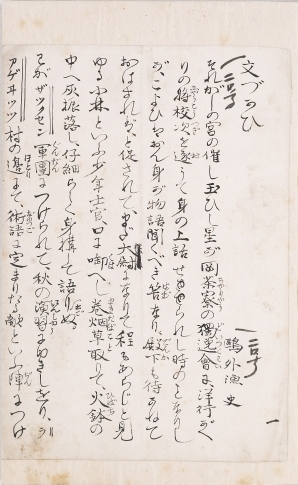 文づかひ
一号
鴎外漁史
それがしの宮の催し玉ひし星が岡茶寮の獨逸會に洋行がへ
りの将校次を逐うて身の上話せられし時のことなりし
が、こよひはおん身が物語聞くべき筈なり、殿下も待かねて
おはすれば、と促されて、まだ大尉になりて程もあらじと見
ゆる小林といふ少年士官口に啣へし巻烟草取りて、火鉢の
中へ灰振落し、仔細らしく身構して語りぬ、
わがザックセン軍團につけられて、秋の演習にゆきしをり、ラ
アゲヰッツ村の邊にて、術語に定まりたる敵といふ陣につけ
一